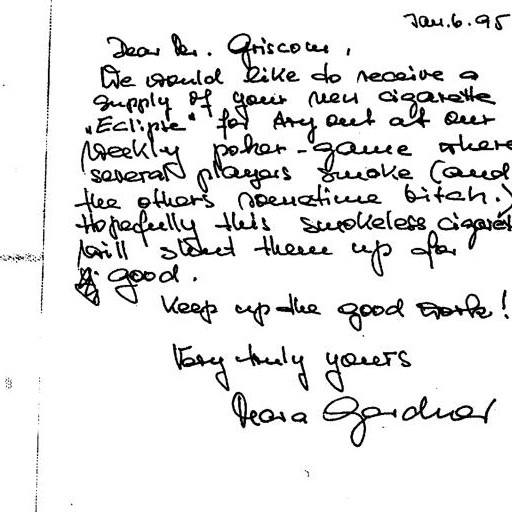 Jan. 6. 95
Dear Mr. Griscom,
We would like to receive a
supply of your new cigarette
"Eclipse" for try out at our
weekly poker-game where
several players smoke (and
the others sometime bitch.)
Hopefully this smokeless cigarett
will shut them up for
good.
Keep up the good work!
Very truly yours
Gardner